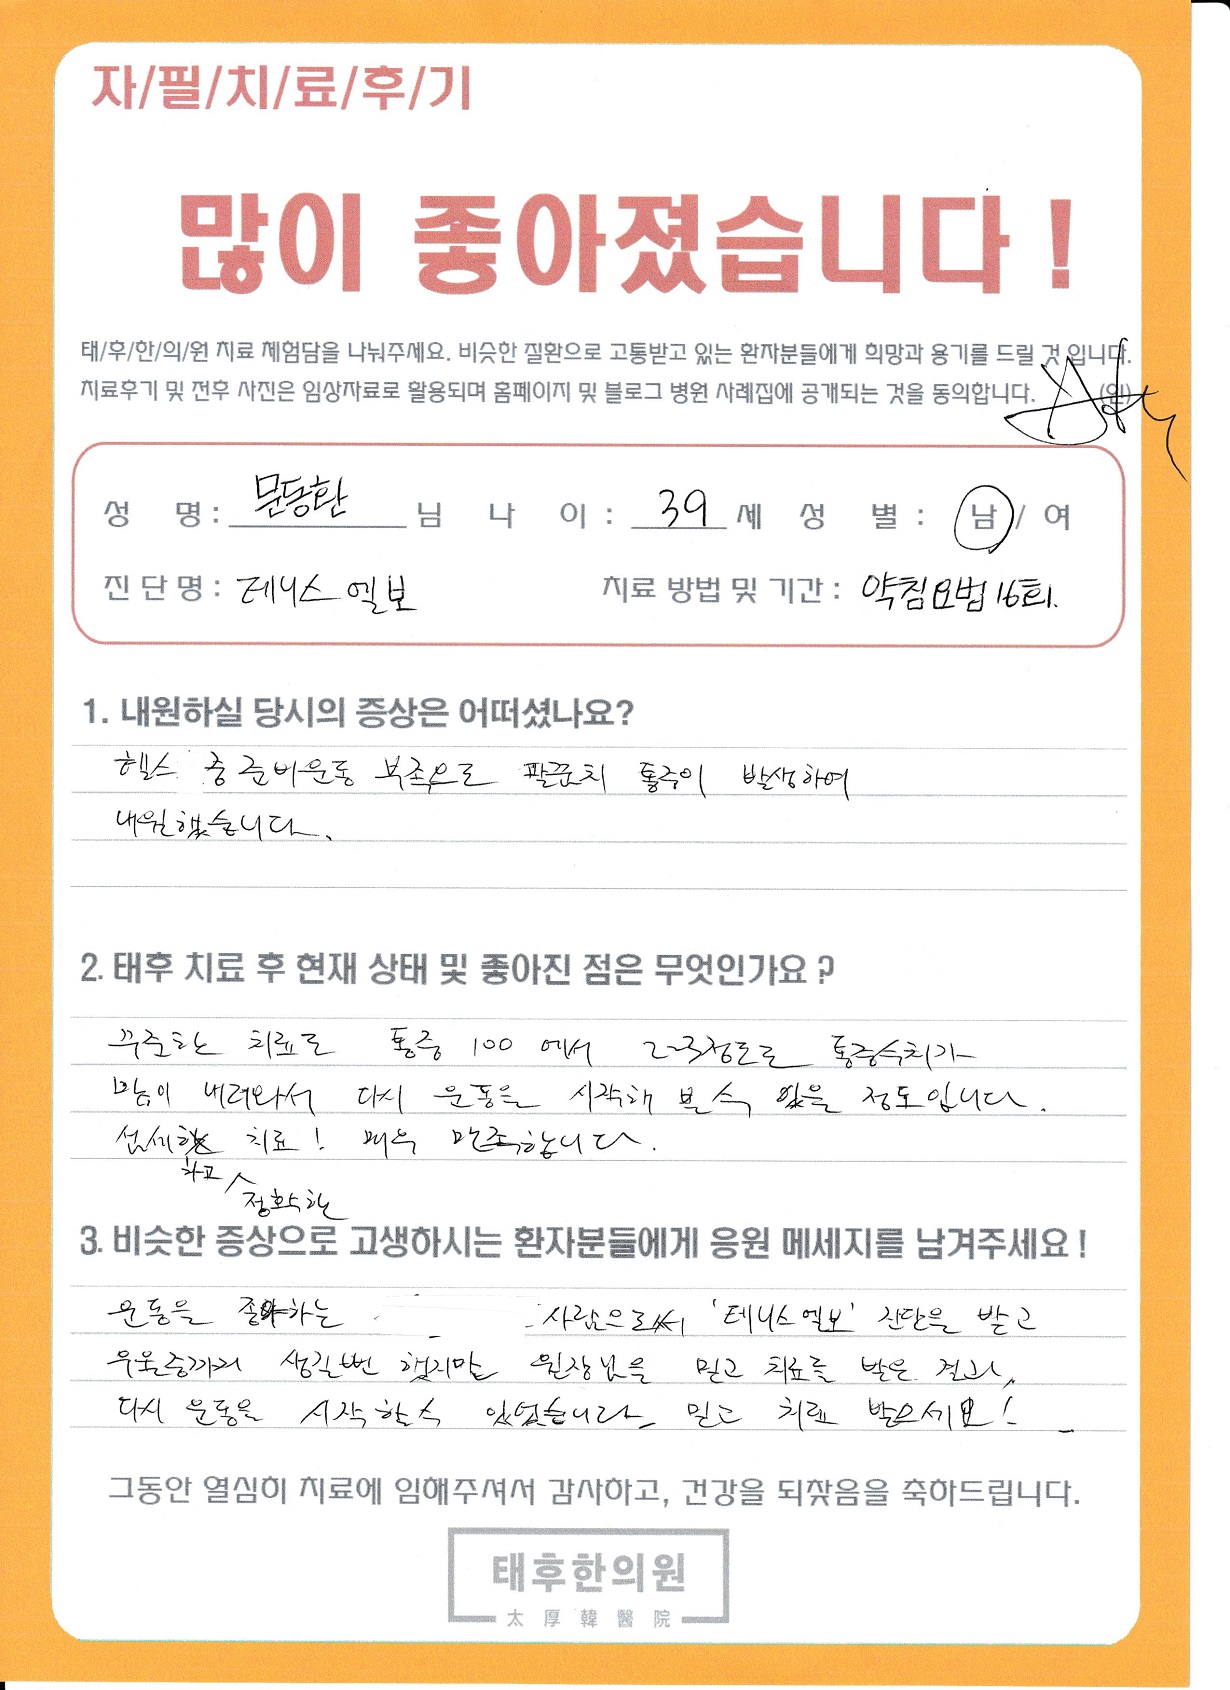 자/필/치/료/후/기
많이 좋아졌습니다 !
태/후/한/의/원 치료 체험담을 나눠주세요. 비슷한 질환으로 고통받고 있는 환자분들에게 희망과 용기를 드릴 것 입니다.
치료후기 및 전후 사진은 임상자료로 활용되며 홈페이지 및 블로그 병원 사례집에 공개되는 것을 동의합니다. (인)
성 명 : 문동환 님 나 이 : 39 세 성 별 : 남 / 여
진 단 명 : 테니스 엘보 치료 방법 및 기간 : 약침요법 16회.
1. 내원하실 당시의 증상은 어떠셨나요?
헬스 중 준비운동 부족으로 팔꿈치 통증이 발생하여
내원했습니다.
2. 태후 치료 후 현재 상태 및 좋아진 점은 무엇인가요 ?
꾸준한 치료로 통증 100 에서 2~3정도로 통증수치가
많이 내려와서 다시 운동을 시작해 볼 수 있을 정도입니다.
섬세 치료! 매우 만족합니다.
하고 정확한
3. 비슷한 증상으로 고생하시는 환자분들에게 응원 메세지를 남겨주세요 !
운동을 좋아하는 사람으로써 '테니스엘보' 진단을 받고
우울증까지 생길뻔 했지만 원장님을 믿고 치료를 받은 결과,
다시 운동을 시작할 수 있었습니다. 믿고 치료 받으세요!
그동안 열심히 치료에 임해주셔서 감사하고, 건강을 되찾음을 축하드립니다.
태후한의원
太 厚 韓 醫 院